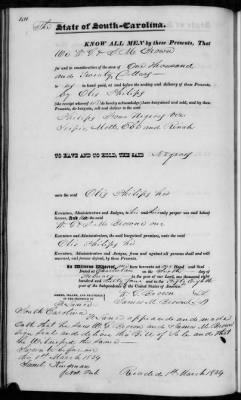 The State of South-Carolina.
KNOW ALL MEN by these Presents, That
We W. G. & J. M. Brown
for and in consideration of the sum of One Thousand
and Twenty Dollars
to us in hand paid, at and before the sealing and delivery of these Presents,
by Otis Philips
(the receipt whereof do hereby acknowledge) have bargained and sold, and by these
Presents, do bargain, sell and deliver to the said Otis
Philips Four Negroes viz
Moll and Dinah
TO HAVE AND TO HOLD, THE SAID Negroes
unto the said Otis Philips his
Executors, Administrators and Assigns, to his and their only proper use and behoof
forever. And the said
W. G. & J. M. Brown our
Executors, Administrators and Assigns, the said bargained premises, unto the said
Otis Philips his
Executors, Administrators and Assigns, from and against all persons shall and will
warrant, and forever defend, by these Presents.
In Witness Whereof, have hereunto set Hand and Seal
Dated at Charleston on the
February in the year of our Lord one thousand eight
hundred and thirty four and in the fifty eighth
year of the Independence of the United States of America.
SIGNED, SEALED, AND DELIVERED
IN THE PRESENCE OF
W. G. Brown
James M. Brown
South Carolina
appeared and made
Oath that he saw W. G. Brown and James M. Brown
Sign Seal and deliver this Bill of Sale and that
he witnessed the same
Sworn to before me
1st March 1834
Recorded 1st March 1834